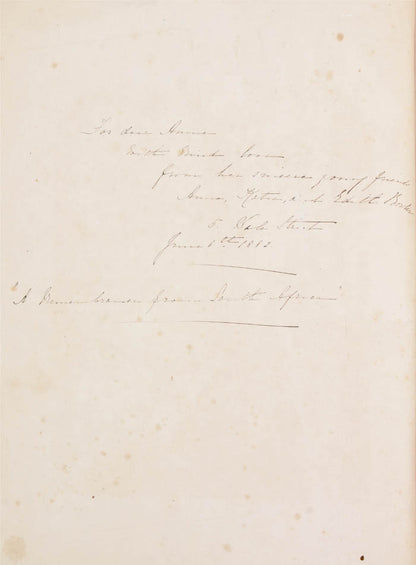 For dear Annie
with much love
from her sincere young friends
Anna, Katie, and Edith
5. Street
June 6th 1882
"A Remembrance from South Africa"